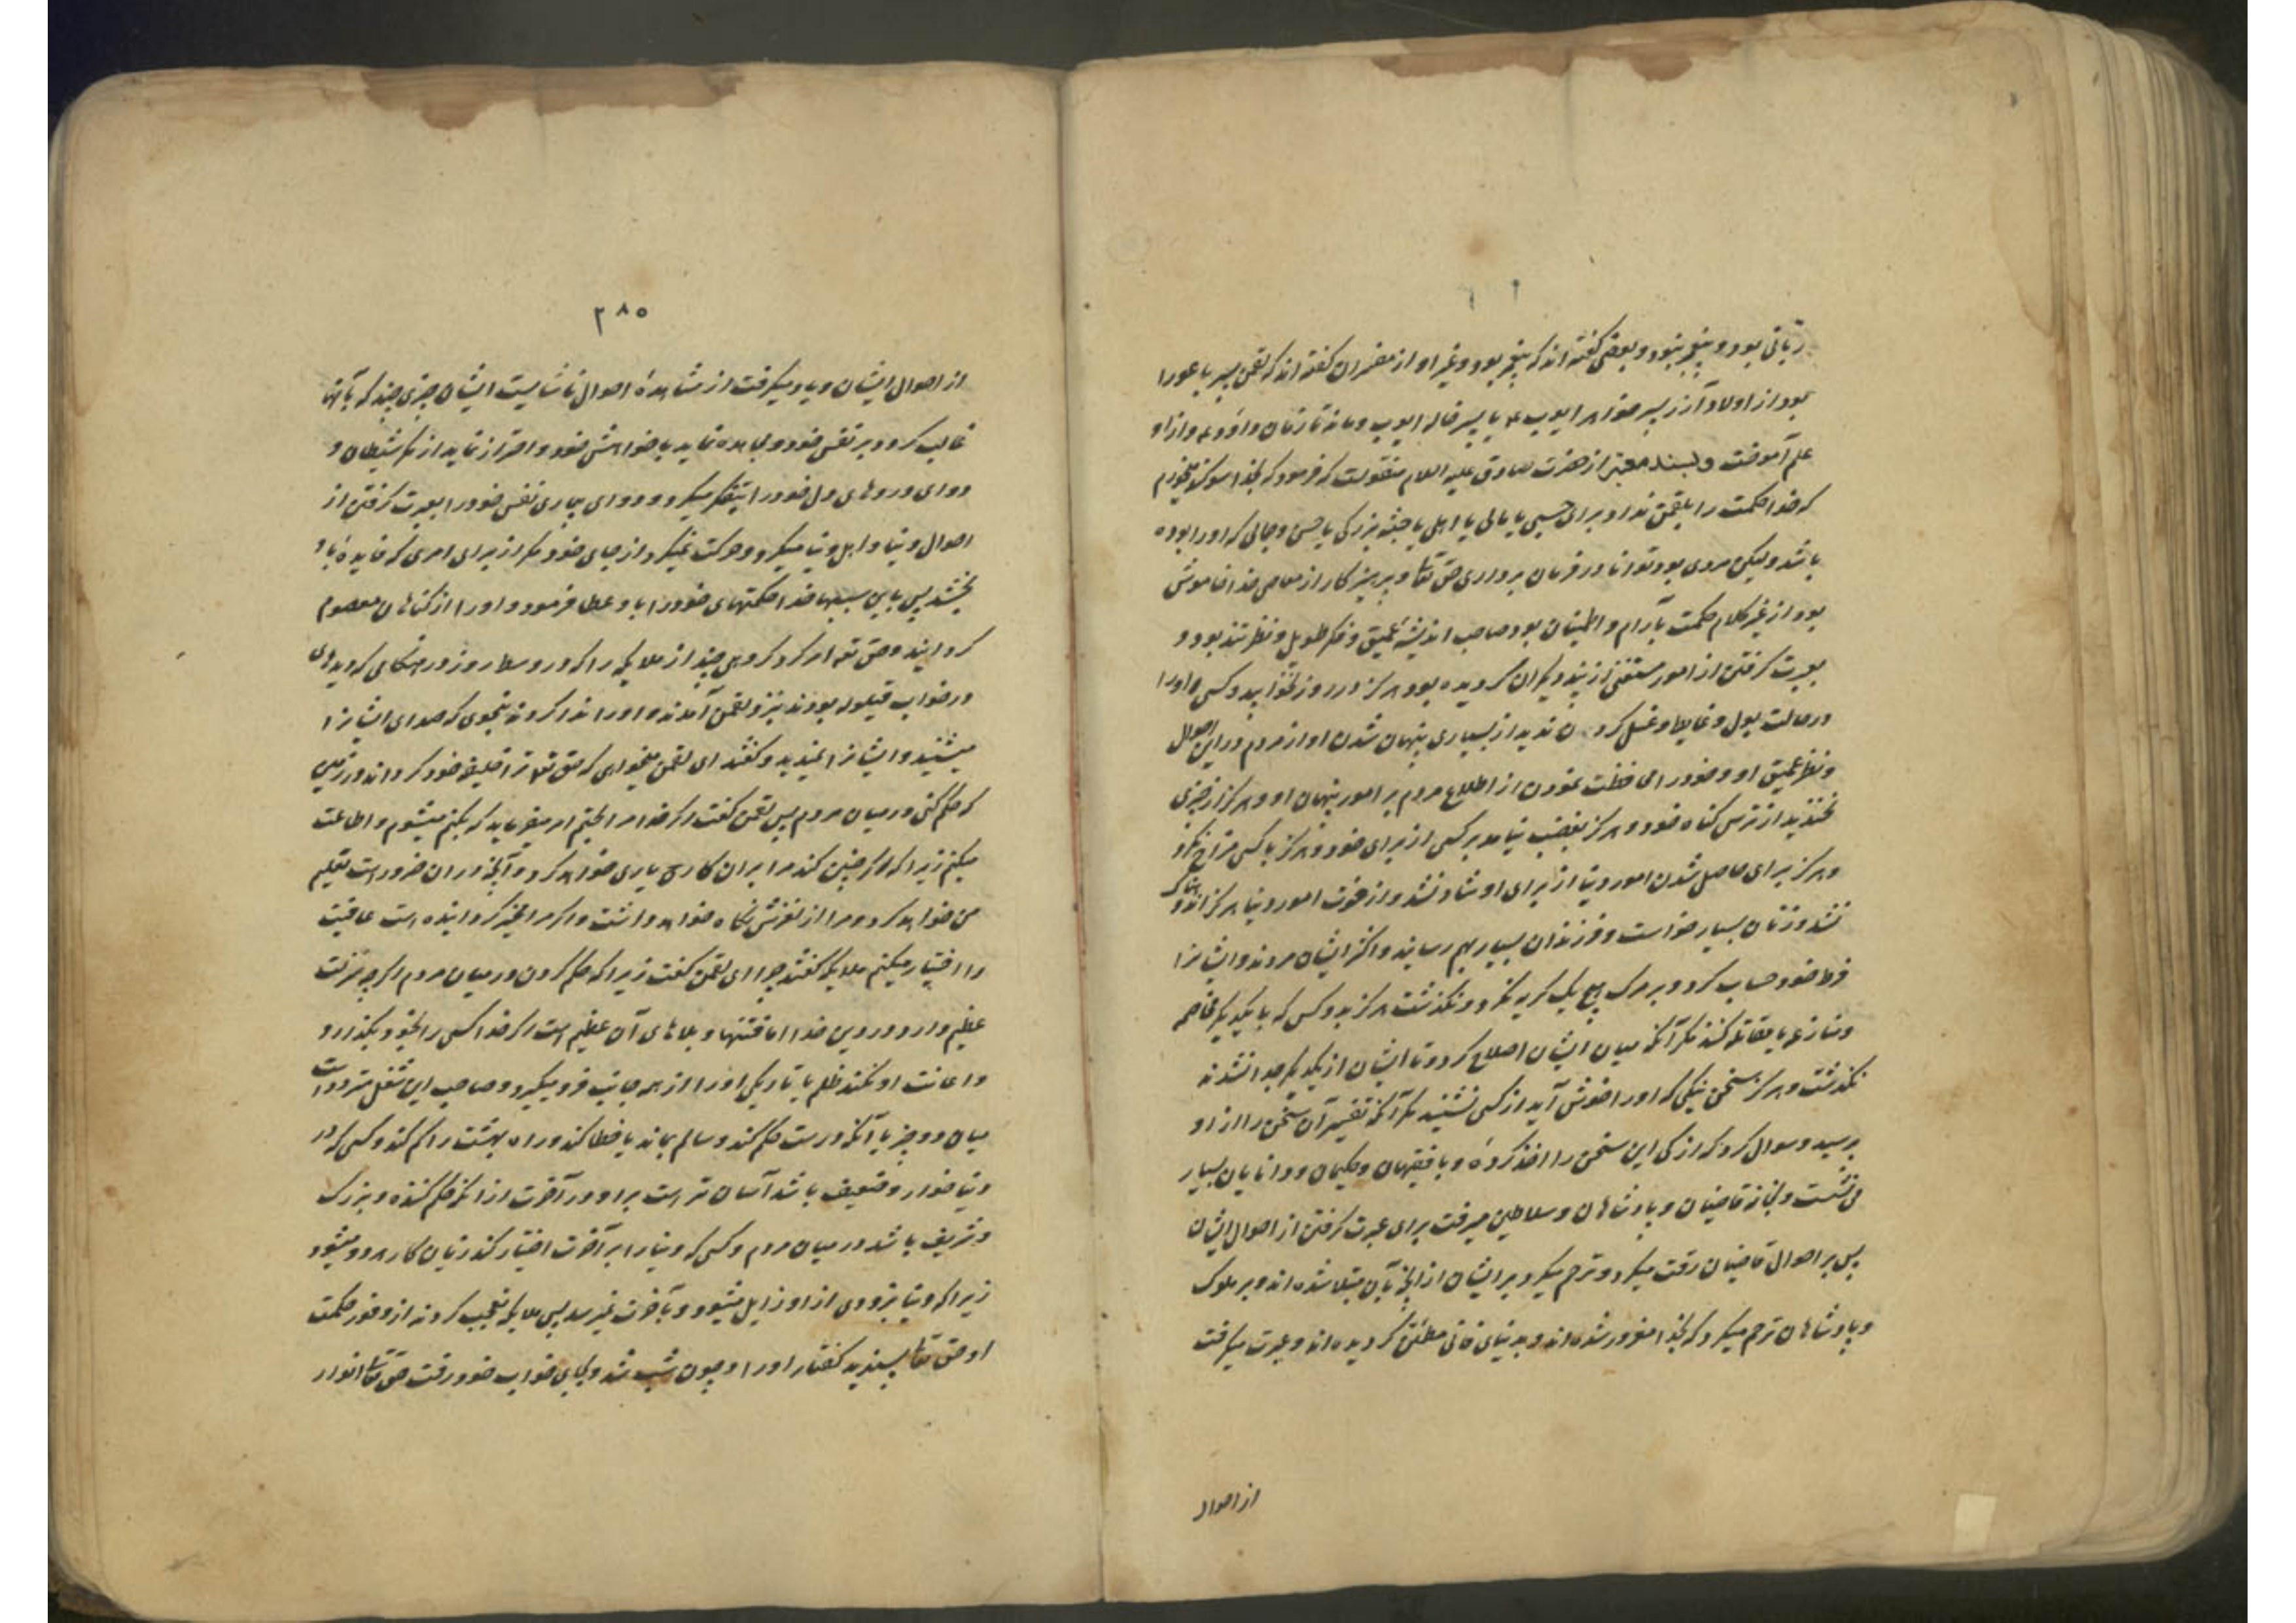 ربّانی بود و پیغمبر نبود و بعضی گفته اند که پیغمبر بود و غیر او از مفسران گفته اند که لقمن پسر باعورا
بود از اولاد آزر پسر خواهر ایوب ع یا پسر خاله ایوب و ماند تا زمان داود ع و از او
علم آموخت و بسند معتبر از حضرت صادق علیه السلام منقولست که فرمود که بخدا سوگند میخورم
که خدا حکمت را بلقمن نداد برای حسبی یا مالی یا اهلی یا جثه بزرگی یا حسن و جمالی که او را بوده
باشد ولیکن مردی بود توانا در فرمان برداری حق تعا و پرهیزکار از معاصی خدا خاموش
بود از غیر کلام حکمت با آرام و اطمینان بود صاحب اندیشه عمیق و فکر طویل و نظر تند بود و
بعبرت گرفتن از امور مستغنی از پند دیگران گردیده بود هرگز در روز نخوابید و کسی او را
در حالت بول و غایط و غسل کردن ندید از بسیاری پنهان شدن او از مردم در این احوال
و نظر عمیق او و خود را محافظت نمودن از اطلاع مردم بر امور پنهان او و هرگز از چیزی
نخندید از ترس گناه خود و هرگز بغضب نیامد بر کسی از برای خود و هرگز با کسی مزاح نکرد
و هرگز برای حاصل شدن امور دنیا از برای او شاد نشد و از فوت امور دنیا هرگز اندوهناک
نشد و زنان بسیار خواست و فرزندان بسیار بهم رسانید و اکثر ایشان مردند و ایشانرا
فرط خود حساب کرد و بر مرگ هیچ یک گریه نکرد و نگذشت هرگز بدو کس که با یکدیگر مخاصمه
و منازعه یا مقاتله کنند مگر آنکه میان ایشان اصلاح کرد و تا ایشان از یکدیگر جدا نشدند
نگذشت و هرگز سخن نیکی که او را خوش آید از کسی نشنید مگر آنکه تفسیر آن سخن را از او
پرسید و سوال کرد که از کی این سخن را اخذ کرده و با فقیهان و حکیمان و دانایان بسیار
می نشست و بخانه قاضیان و پادشاهان و سلاطین میرفت برای عبرت گرفتن از احوال ایشان
پس بر احوال قاضیان رقت میکرد و ترحم میکرد بر ایشان از آنچه بآن مبتلا شده اند و بر ملوک
و پادشاهان ترحم میکرد که بخدا مغرور شده اند و بدنیای فانی مطمئن گردیده اند و عبرت میگرفت
از احوال
۲۸۵
از احوال ایشان و یاد میگرفت از مشاهدهٔ احوال ناشایست ایشان چیزی چند که بآنها
غالب گردد بر نفس خود و مجاهده نماید با خواهش خود و احتراز نماید از مکر شیطان و
دوای دردهای دل خود را بتفکر میکرد و دوای بیماری نفس خود را بعبرت گرفتن از
احوال دنیا و اهل دنیا میکرد و حرکت نمیکرد از جای خود مگر از برای امری که فایده باو
بخشد پس باین سببها خدا حکمتهای خود را باو عطا فرمود و او را از گناهان معصوم
گردانید و حق تع امر کرد گروهی چند از ملایکه را که در وسط روز در هنگامی که دیدهای
در خواب قیلوله بودند نزد لقمن آمدند و او را ندا کردند بنحوی که صدای ایشانرا
میشنید و ایشانرا نمیدید و گفتند ای لقمن میخواهی که حق تع ترا خلیفه خود گرداند در زمین
که حکم کنی در میان مردم پس لقمن گفت اگر خدا مرا بحتم امر میفرماید که بکنم میشنوم و اطاعت
میکنم زیرا که اگر چنین کند مرا بر آن کار یاری خواهد کرد و آنچه در آن ضرور است تعلیم
من خواهد کرد و مرا از لغزش نگاه خواهد داشت و اگر مرا مخیر گردانیده است عافیت
را اختیار میکنم ملایکه گفتند چرا ای لقمن گفت زیرا که حکم کردن در میان مردم اگر چه منزلت
عظیم دارد در دین خدا اما فتنها و بلاهای آن عظیم است اگر خدا کسی را بخود بگذارد و
و اعانت او نکند ظلم یا تاریکی او را از هر جانب فرو میگیرد و صاحب این شغل متردد است
میان دو چیز یا آنکه درست حکم کند و سالم بماند یا خطا کند و راه بهشت را گم کند و کسی که در
دنیا خوار و ضعیف باشد آسان تر است بر او در آخرت از آنکه حکم کننده و بزرگ
و شریف باشد در میان مردم و کسی که دنیا را بر آخرت اختیار کند زیان کار هر دو میشود
زیرا که دنیا بزودی از او زایل میشود و بآخرت نمیرسد پس ملایکه تعجب کردند از وفور حکمت
او حق تعا پسندید گفتار او را و چون شب شد و بجای خواب خود رفت حق تعا انوار